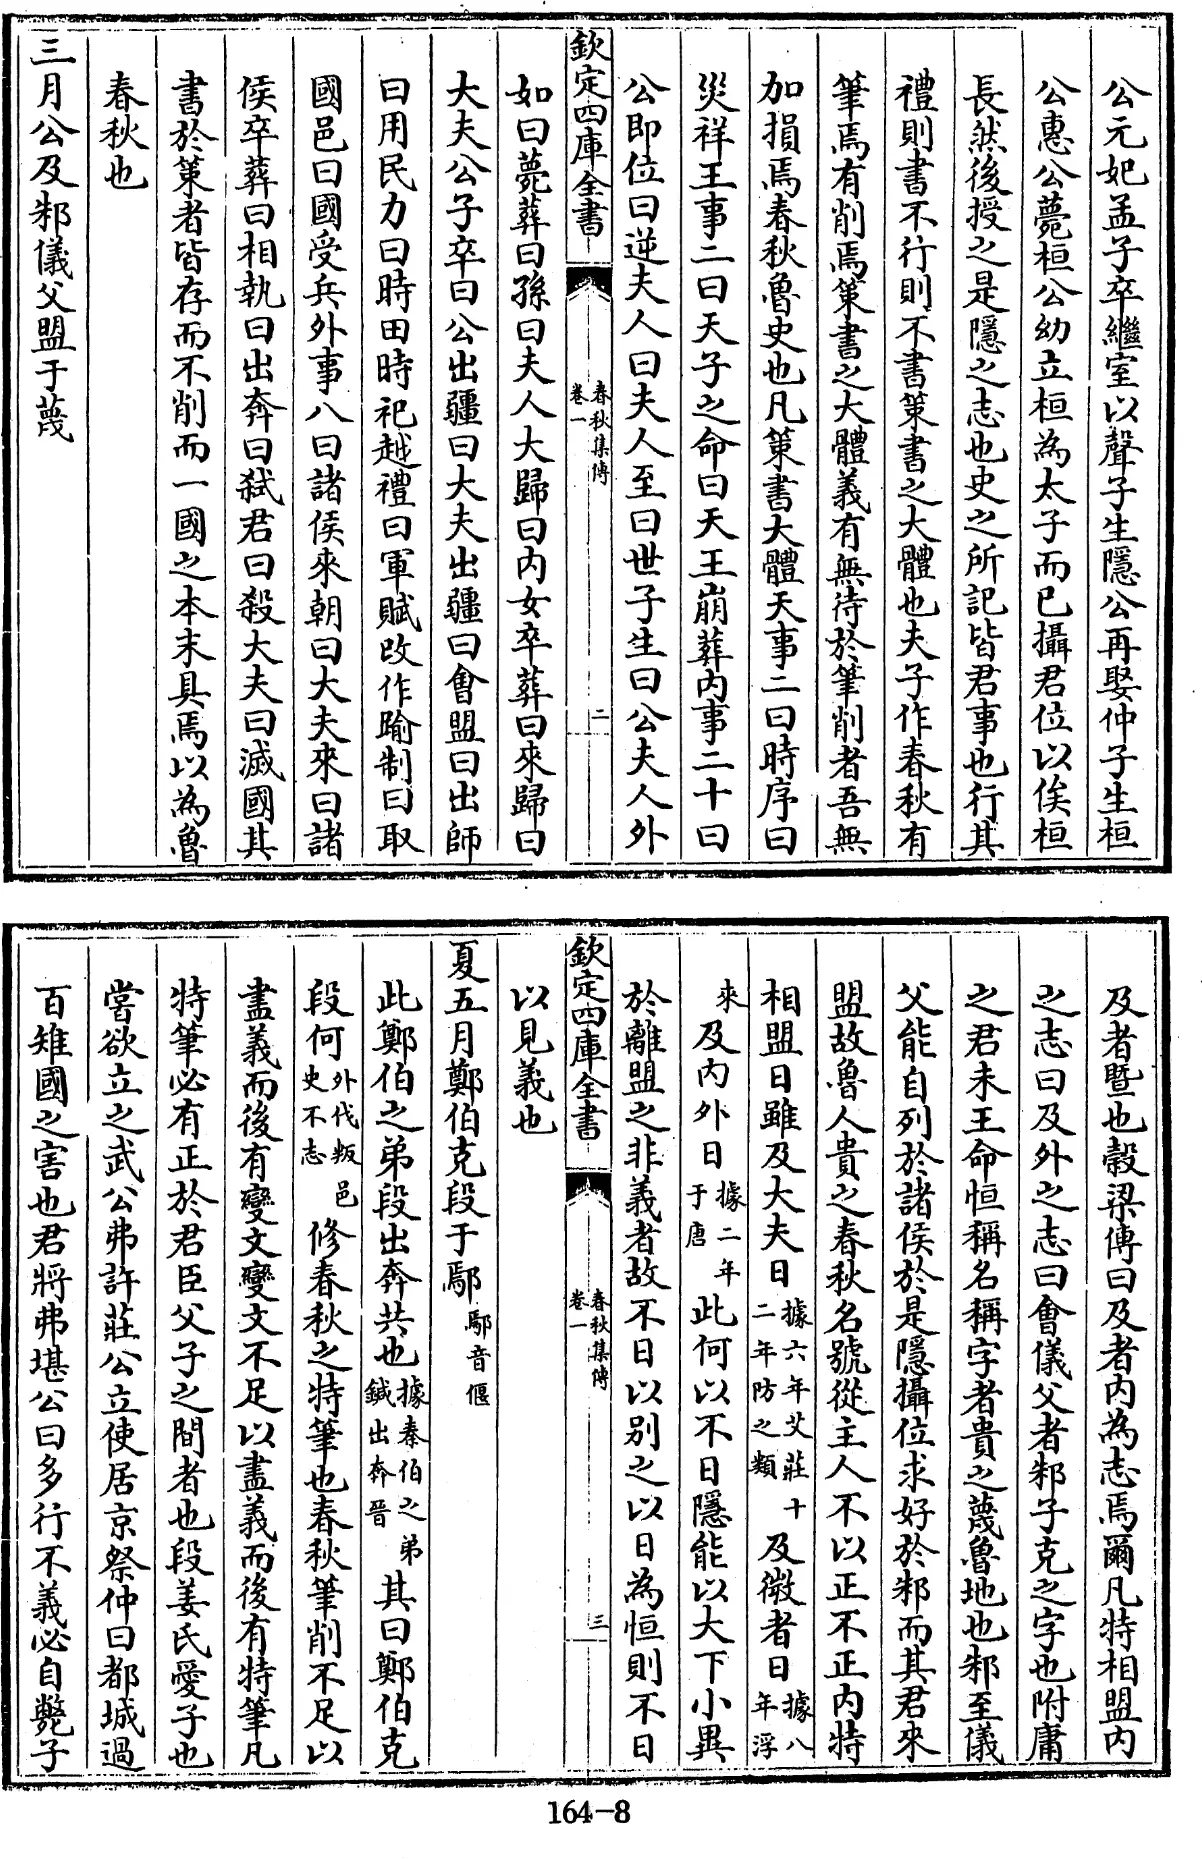 公元妃孟子卒繼室以聲子生隱公再娶仲子生桓
公惠公薨桓公幼立桓為太子而已攝君位以俟桓
長然後授之是隱之志也史之所記皆君事也行其
禮則書不行則不書策書之大體也夫子作春秋有
筆焉有削焉策書之大體義有無待於筆削者吾無
加損焉春秋魯史也凡策書大體天事二曰時序曰
災祥王事二曰天子之命曰天王崩葬內事二十曰
公即位曰逆夫人曰夫人至曰世子生曰公夫人外
欽定四庫全書
春秋集傳
卷一
二
如曰薨葬曰孫曰夫人大歸曰內女卒葬曰來歸曰
大夫公子卒曰公出疆曰大夫出疆曰會盟曰出師
曰用民力曰時田時祀越禮曰軍賦改作踰制曰取
國邑曰國受兵外事八曰諸侯來朝曰大夫來曰諸
侯卒葬曰相執曰出奔曰弒君曰殺大夫曰滅國其
書於策者皆存而不削而一國之本末具焉以為魯
春秋也
三月公及邾儀父盟于蔑
及者暨也穀梁傳曰及者內為志焉爾凡特相盟內
之志曰及外之志曰會儀父者邾子克之字也附庸
之君未王命恒稱名稱字者貴之蔑魯地也邾至儀
父能自列於諸侯於是隱攝位求好於邾而其君來
盟故魯人貴之春秋名號從主人不以正不正內特
相盟日雖及大夫日據六年艾莊十二年防之類及微者日據八年浮
來及內外日據二年于唐此何以不日隱能以大下小異
於離盟之非義者故不日以別之以日為恒則不日
欽定四庫全書
春秋集傳
卷一
三
以見義也
夏五月鄭伯克段于鄢鄢音偃
此鄭伯之弟段出奔共也據秦伯之弟鍼出奔晉其曰鄭伯克
段何外代叛邑史不志修春秋之特筆也春秋筆削不足以
盡義而後有變文變文不足以盡義而後有特筆凡
特筆必有正於君臣父子之間者也段姜氏愛子也
嘗欲立之武公弗許莊公立使居京祭仲曰都城過
百雉國之害也君將弗堪公曰多行不義必自斃子
164-8